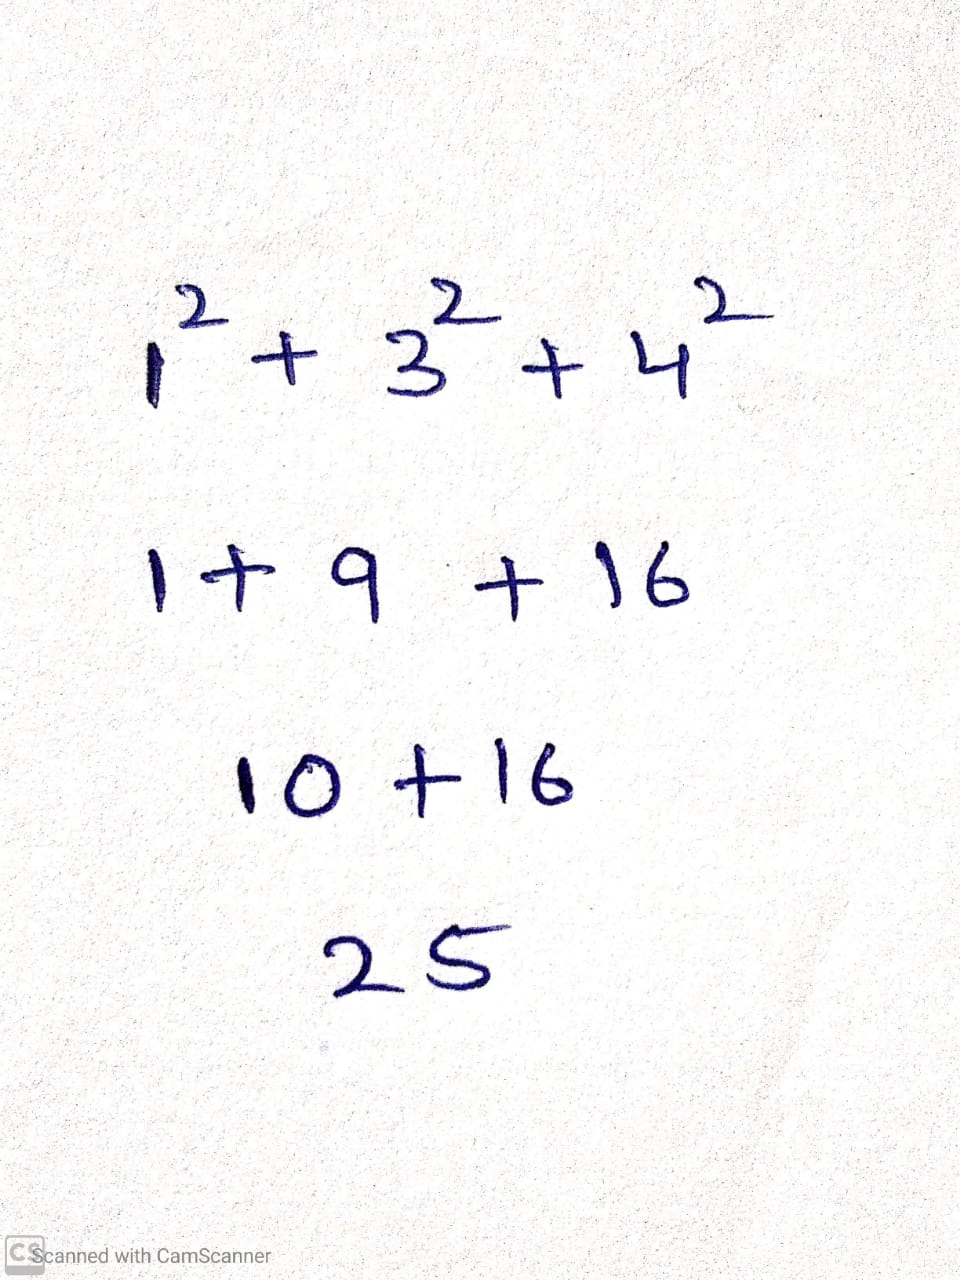 1² + 3² + 4²
1 + 9 + 16
10 + 16
25
CS Scanned with CamScanner